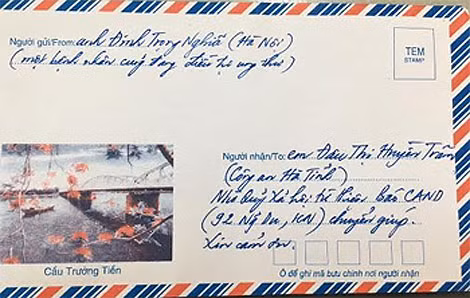 Người gửi/From: anh Đinh Trọng Nghĩa (Hà Nội)
(một bệnh nhân cũng đang điều trị ung thư)
TEM
STAMP
Người nhận/To: em Đậu Thị Huyền Trâm
(Công an Hà Tĩnh)
Nhờ Quỹ Xã hội từ thiện Báo CAND
(92 Ng Du, HN) chuyển giúp.
Xin cảm ơn.
Cầu Trường Tiền
Ô để ghi mã bưu chính nơi người nhận